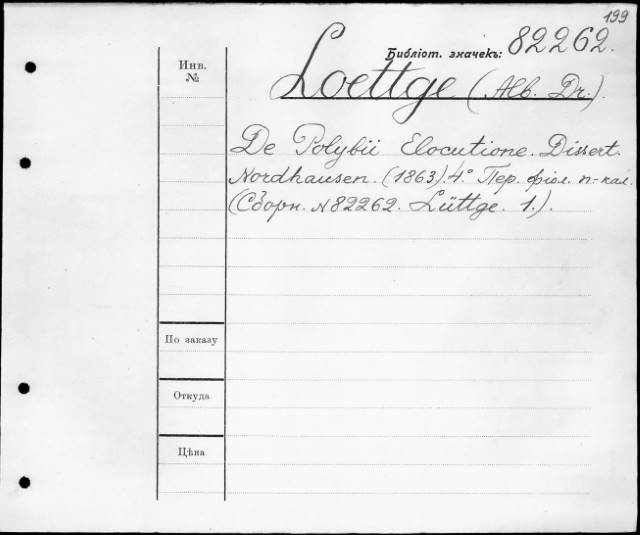 199
Библіот. значекъ: 82262.
Инв. №
Loettge (Alb. Dr.).
De Polybii Elocutione. Dissert.
Nordhausen. (1863). 4.° Пер. фіол. п.-кал.
(Сборн. № 82262. Lüttge. 1.).
По заказу
Откуда
Цѣна